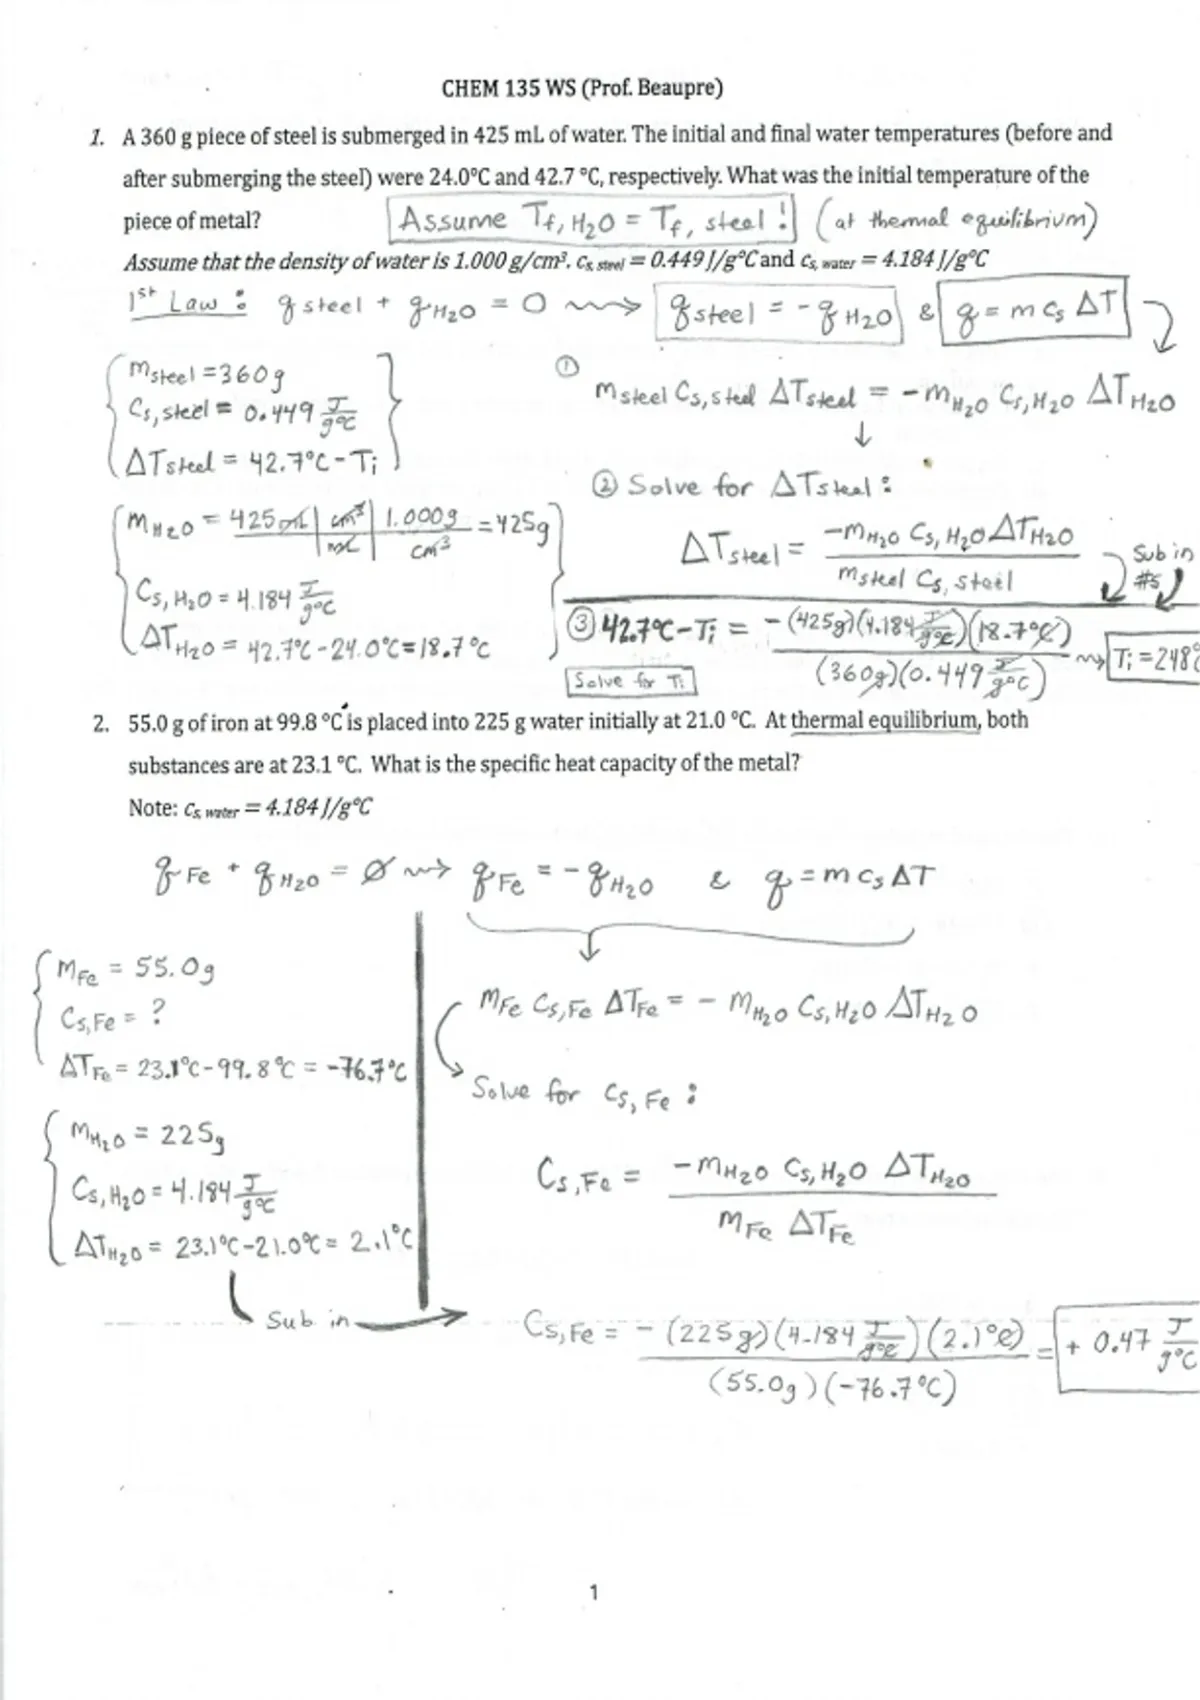 CHEM 135 WS (Prof. Beaupre)
1. A 360 g piece of steel is submerged in 425 mL of water. The initial and final water temperatures (before and
after submerging the steel) were 24.0°C and 42.7 °C, respectively. What was the initial temperature of the
piece of metal? Assume Tf, H2O = Tf, steel ! (at thermal equilibrium)
Assume that the density of water is 1.000 g/cm³. Cs, steel = 0.449 J/g°C and Cs, water = 4.184 J/g°C
1st Law : q steel + q H2O = 0 ⇝ q steel = - q H2O & q = m cs ΔT
msteel = 360g
Cs, steel = 0.449 J/g°C
ΔTsteel = 42.7°C - Ti
① msteel Cs, steel ΔTsteel = - mH2O Cs, H2O ΔTH2O
↓
② Solve for ΔTsteel :
mH2O = 425 mL | cm³ | 1.000g = 425g
mL | cm³
ΔTsteel = -mH2O Cs, H2O ΔTH2O
msteel Cs, steel
Sub in
#s
Cs, H2O = 4.184 J/g°C
ΔTH2O = 42.7°C - 24.0°C = 18.7 °C
③ 42.7°C - Ti = - (425g)(4.184 J/g°C)(18.7°C)
(360g)(0.449 J/g°C)
⇝ Ti = 248°
Solve for Ti
2. 55.0 g of iron at 99.8 °C is placed into 225 g water initially at 21.0 °C. At thermal equilibrium, both
substances are at 23.1 °C. What is the specific heat capacity of the metal?
Note: Cs, water = 4.184 J/g°C
q Fe + q H2O = 0 ⇝ q Fe = - q H2O & q = m cs ΔT
mFe = 55.0g
Cs, Fe = ?
ΔTFe = 23.1°C - 99.8°C = -76.7°C
mFe Cs, Fe ΔTFe = - mH2O Cs, H2O ΔTH2O
Solve for Cs, Fe :
mH2O = 225g
Cs, H2O = 4.184 J/g°C
ΔTH2O = 23.1°C - 21.0°C = 2.1°C
Cs, Fe = -mH2O Cs, H2O ΔTH2O
mFe ΔTFe
Sub in
Cs, Fe = - (225g)(4.184 J/g°C)(2.1°C) = + 0.47 J/g°C
(55.0g)(-76.7°C)
1